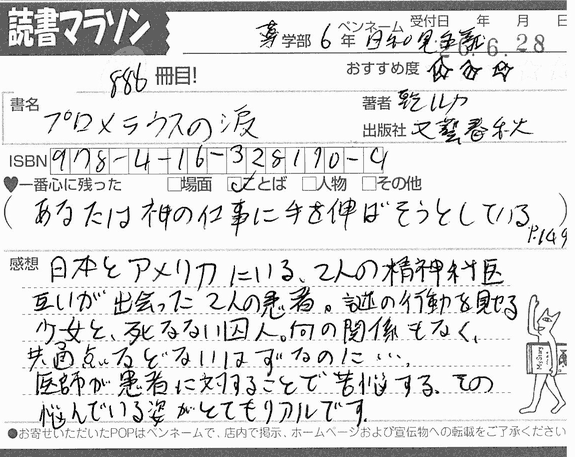 読書マラソン
ペンネーム 受付日 年 月 日
薬学部 6年 日和見主義 6.28
886冊目! おすすめ度 ☆☆☆
書名 著者 乾ルカ
プロメテウスの涙 出版社 文藝春秋
ISBN 978-4-16-328190-4
♥一番心に残った □場面 ☑ことば □人物 □その他
(あなたは神の仕事に手を伸ばそうとしている P.149
感想 日本とアメリカにいる、2人の精神科医
互いが出会った2人の患者。謎の行動を見せる
少女と、死なない囚人。何の関係もなく、
共通点などないはずなのに…。
医師が患者に対することで苦悩する、その
悩んでいる姿がとてもリアルです。
●お寄せいただいたPOPはペンネームで、店内で掲示、ホームページおよび宣伝物への転載をご了承ください